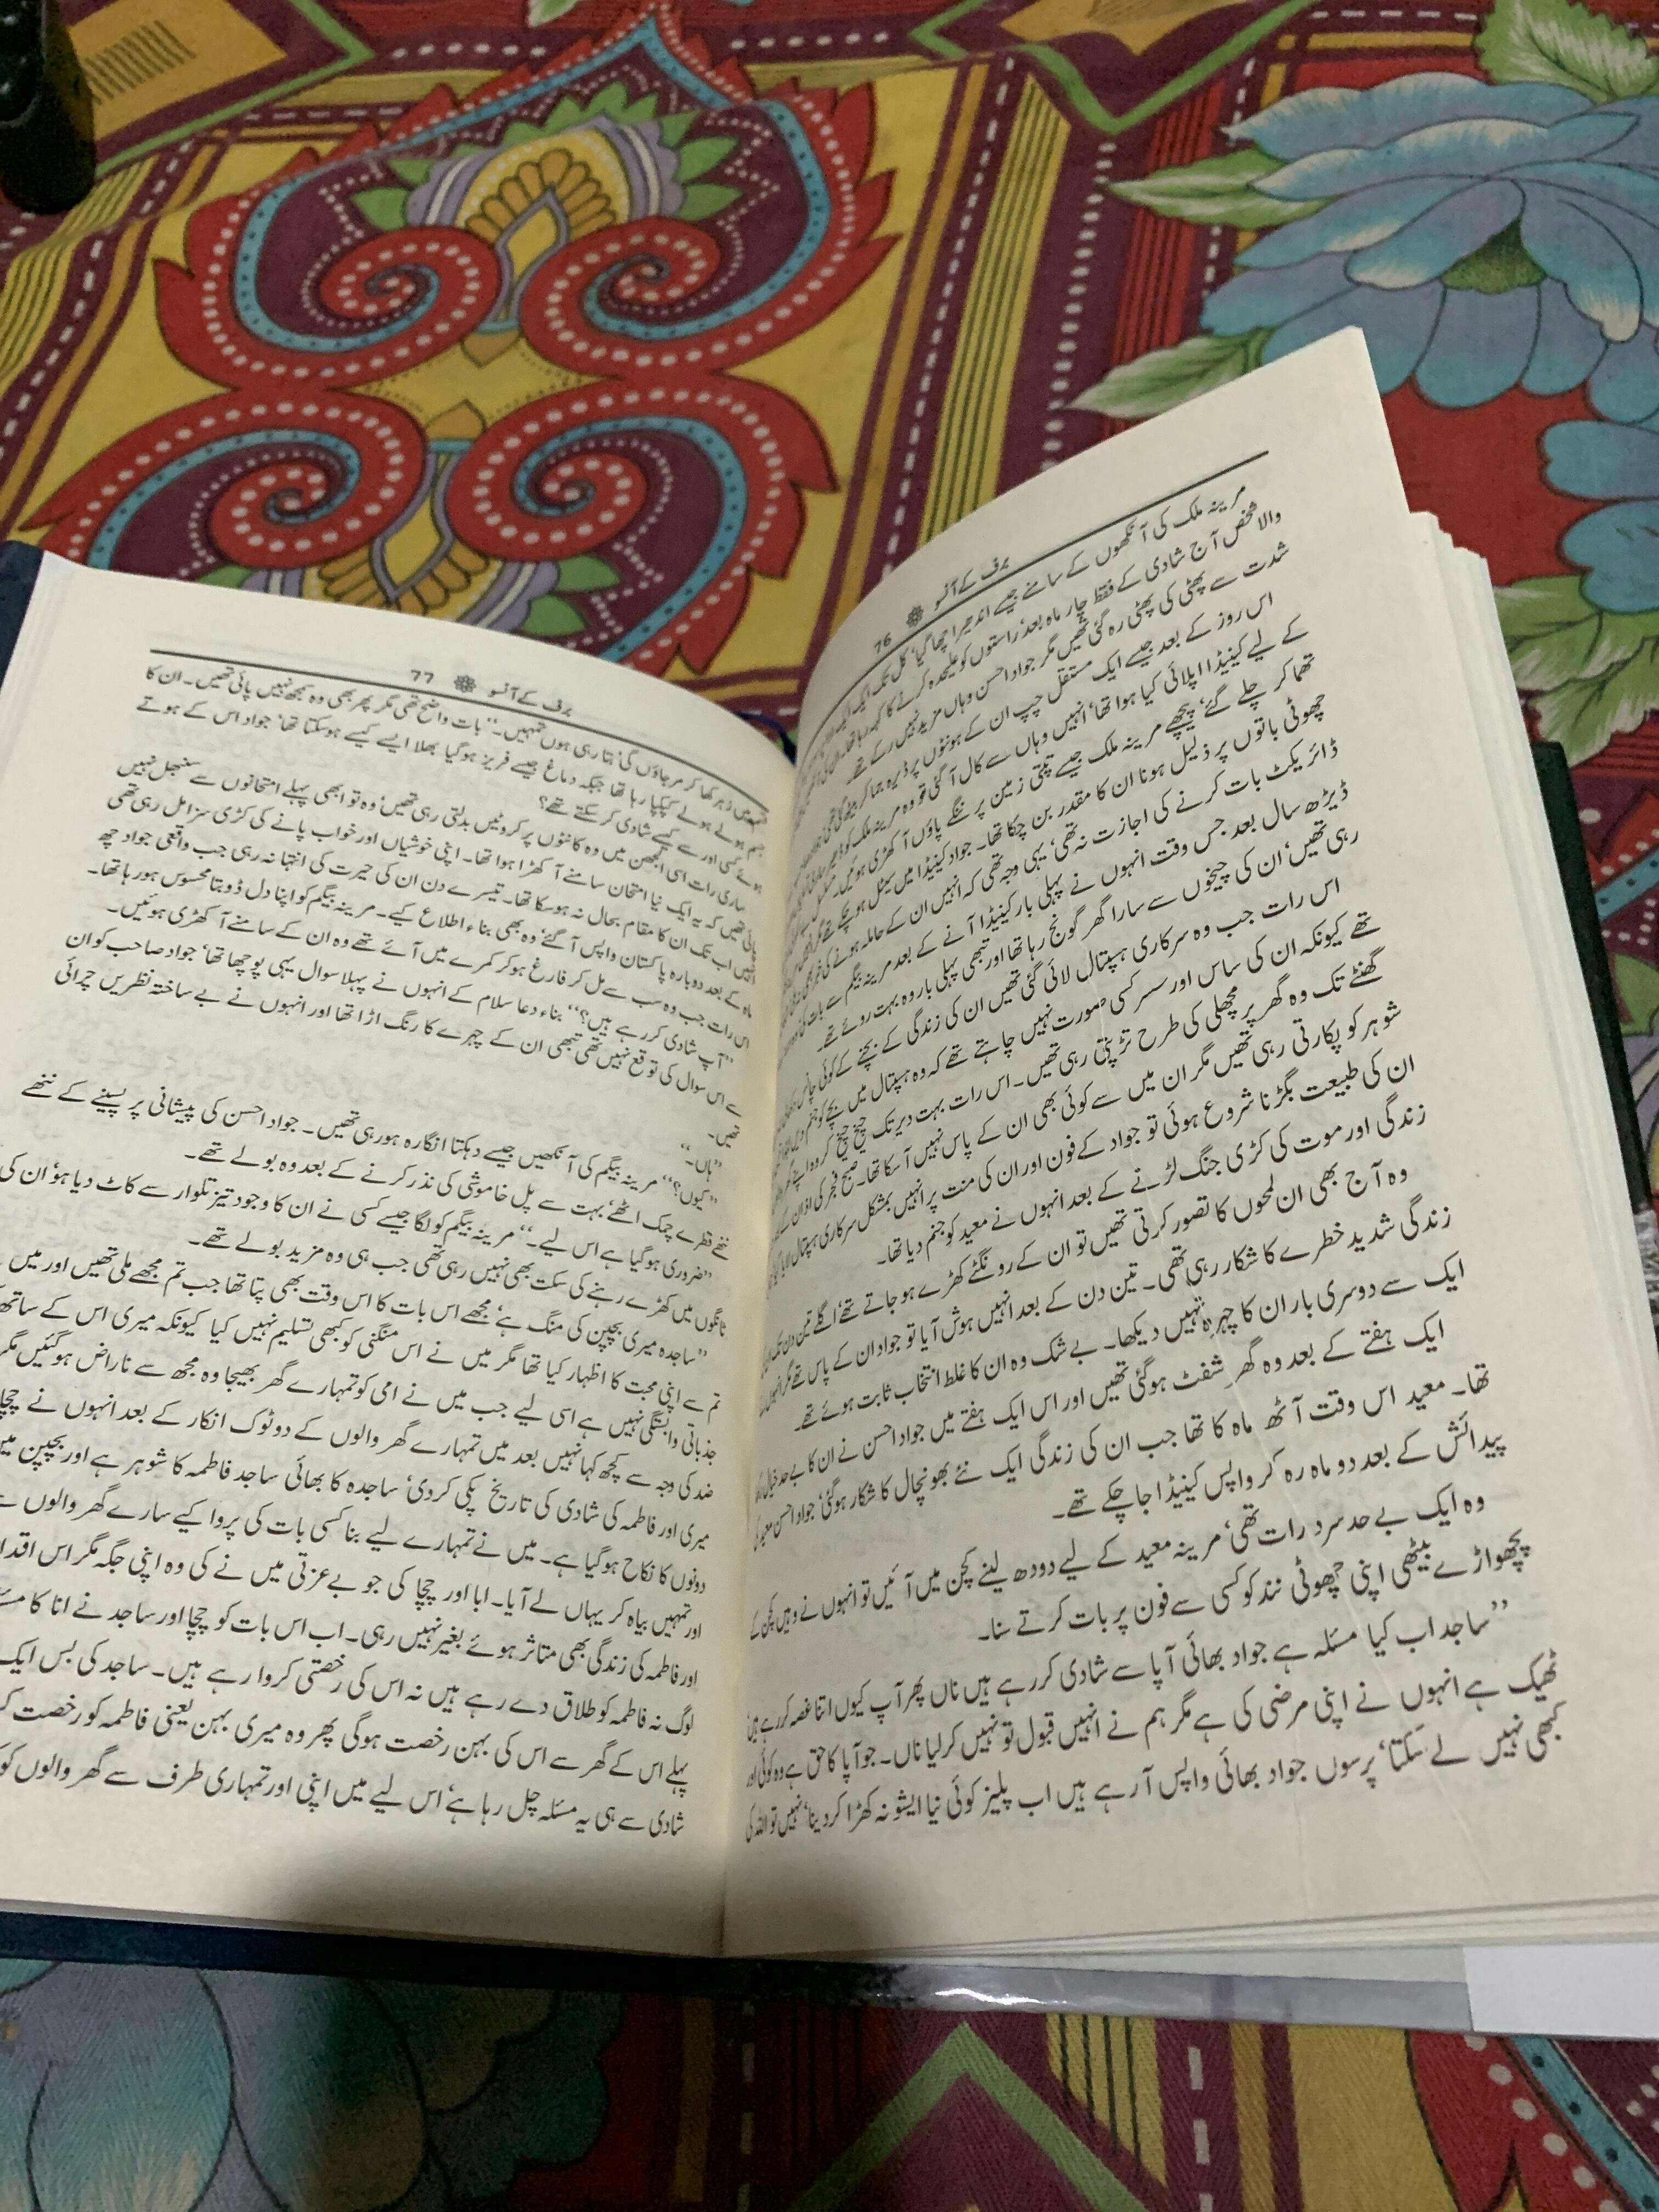 برف کے آنسو 76
مرینہ ملک کی آنکھوں کے سامنے جیسے اندھیرا چھا گیا، کل تک
والا شخص آج شادی کے فقط چار ماہ بعد راستوں کو علیحدہ کرنے کا
شدت سے پھٹی کی پھٹی رہ گئی تھیں مگر جواد احسن وہاں مزید نہیں رکے تھے
اس روز کے بعد جیسے ایک مستقل چپ ان کے ہونٹوں پر ڈیرہ جما کر بیٹھ گئی تھی
کے لیے کینیڈا اپلائی کیا ہوا تھا، انہیں وہاں سے کال آ گئی تو وہ مرینہ ملک کو
تھما کر چلے گئے، پیچھے مرینہ ملک جیسے تپتی زمین پر ننگے پاؤں آ کھڑی ہوئیں۔
چھوٹی باتوں پر ذلیل ہونا ان کا مقدر بن چکا تھا۔ جواد کینیڈا میں سیٹل ہو چکے تھے
ڈائریکٹ بات کرنے کی اجازت نہ تھی، یہی وجہ تھی کہ انہیں ان کے حاملہ ہونے کی خبر
ڈیڑھ سال بعد جس وقت انہوں نے پہلی بار کینیڈا آنے کے بعد مرینہ بیگم سے بات کی
رہی تھیں، ان کی چیخوں سے سارا گھر گونج رہا تھا اور تبھی پہلی بار وہ بہت روئے تھے۔
اس رات جب وہ سرکاری ہسپتال لائی گئی تھیں ان کی زندگی کے بچنے کے کوئی چانس
تھے کیونکہ ان کی ساس اور سسر کسی صورت نہیں چاہتے تھے کہ وہ ہسپتال میں بچے کو جنم
گھنٹے تک وہ گھر پر مچھلی کی طرح تڑپتی رہی تھیں۔ اس رات بہت دیر تک چیخ چیخ کر وہ اپنے
شوہر کو پکارتی رہی تھیں مگر ان میں سے کوئی بھی ان کے پاس نہیں آ سکا تھا۔ صبح فجر کی اذان کے
ان کی طبیعت بگڑنا شروع ہوئی تو جواد کے فون اور ان کی منت پر انہیں بمشکل سرکاری ہسپتال لایا گیا
زندگی اور موت کی کڑی جنگ لڑنے کے بعد انہوں نے معید کو جنم دیا تھا۔
وہ آج بھی ان لمحوں کا تصور کرتی تھیں تو ان کے رونگٹے کھڑے ہو جاتے تھے، اگلے تین دن تک ان کی
زندگی شدید خطرے کا شکار رہی تھی۔ تین دن کے بعد انہیں ہوش آیا تو جواد ان کے پاس تھے مگر انہوں نے
ایک سے دوسری بار ان کا چہرہ نہیں دیکھا۔ بے شک وہ ان کا غلط انتخاب ثابت ہوئے تھے۔
ایک ہفتے کے بعد وہ گھر شفٹ ہو گئی تھیں اور اس ایک ہفتے میں جواد احسن نے ان کا بے حد خیال رکھا
تھا۔ معید اس وقت آٹھ ماہ کا تھا جب ان کی زندگی ایک نئے بھونچال کا شکار ہو گئی، جواد احسن معید کی
پیدائش کے بعد دو ماہ رہ کر واپس کینیڈا جا چکے تھے۔
وہ ایک بے حد سرد رات تھی، مرینہ معید کے لیے دودھ لینے کچن میں آئیں تو انہوں نے وہیں کچن کے
پچھواڑے بیٹھی اپنی چھوٹی نند کو کسی سے فون پر بات کرتے سنا۔
”ساجد اب کیا مسئلہ ہے جواد بھائی آپا سے شادی کر رہے ہیں ناں پھر آپ کیوں اتنا غصہ کر رہے ہیں
ٹھیک ہے انہوں نے اپنی مرضی کی ہے مگر ہم نے انہیں قبول تو نہیں کر لیا ناں۔ جو آپا کا حق ہے وہ کوئی اور
کبھی نہیں لے سکتا، پرسوں جواد بھائی واپس آ رہے ہیں اب پلیز کوئی نیا ایشو نہ کھڑا کر دینا، نہیں تو اللہ کی
برف کے آنسو 77
قسم میں زہر کھا کر مر جاؤں گی بتا رہی ہوں تمہیں۔“ بات واضح تھی مگر پھر بھی وہ سمجھ نہیں پائی تھیں۔ ان کا
جسم ہولے ہولے کپکپا رہا تھا جبکہ دماغ جیسے فریز ہو گیا بھلا ایسے کیسے ہو سکتا تھا، جواد اس کے ہوتے
ہوئے کسی اور سے کیسے شادی کر سکتے تھے؟
ساری رات اسی الجھن میں وہ کانٹوں پر کروٹیں بدلتی رہی تھیں، وہ تو ابھی پہلے امتحانوں سے سنبھل نہیں
پائی تھیں کہ یہ ایک نیا امتحان سامنے آ کھڑا ہوا تھا۔ اپنی خوشیاں اور خواب پانے کی کڑی سزا مل رہی تھی
انہیں اب تک ان کا مقام بحال نہ ہو سکا تھا۔ تیسرے دن ان کی حیرت کی انتہا نہ رہی جب واقعی جواد چھ
ماہ کے بعد دوبارہ پاکستان واپس آ گئے، وہ بھی بناء اطلاع کیے۔ مرینہ بیگم کو اپنا دل ڈوبتا محسوس ہو رہا تھا۔
اس رات جب وہ سب سے مل کر فارغ ہو کر کمرے میں آئے تھے وہ ان کے سامنے آ کھڑی ہوئیں۔
”آپ شادی کر رہے ہیں؟“ بناء دعا سلام کے انہوں نے پہلا سوال یہی پوچھا تھا، جواد صاحب کو ان
سے اس سوال کی توقع نہیں تھی تبھی ان کے چہرے کا رنگ اڑا تھا اور انہوں نے بے ساختہ نظریں چرائی
تھیں۔
”ہاں۔“
”کیوں؟“ مرینہ بیگم کی آنکھیں جیسے دہکتا انگارہ ہو رہی تھیں۔ جواد احسن کی پیشانی پر پسینے کے ننھے
ننھے قطرے چمک اٹھے، بہت سے پل خاموشی کی نذر کرنے کے بعد وہ بولے تھے۔
”ضروری ہو گیا ہے اس لیے۔“ مرینہ بیگم کو لگا جیسے کسی نے ان کا وجود تیز تلوار سے کاٹ دیا ہو، ان کی
ٹانگوں میں کھڑے رہنے کی سکت بھی نہیں رہی تھی جب ہی وہ مزید بولے تھے۔
”ساجدہ میری بچپن کی منگ ہے، مجھے اس بات کا اس وقت بھی پتا تھا جب تم مجھے ملی تھیں اور میں
تم سے اپنی محبت کا اظہار کیا تھا مگر میں نے اس منگنی کو کبھی تسلیم نہیں کیا کیونکہ میری اس کے ساتھ
جذباتی وابستگی نہیں ہے اسی لیے جب میں نے امی کو تمہارے گھر بھیجا وہ مجھ سے ناراض ہو گئیں مگر
ضد کی وجہ سے کچھ کہا نہیں بعد میں تمہارے گھر والوں کے دو ٹوک انکار کے بعد انہوں نے چچا
میری اور فاطمہ کی شادی کی تاریخ پکی کر دی، ساجدہ کا بھائی ساجد فاطمہ کا شوہر ہے اور بچپن میں
دونوں کا نکاح ہو گیا ہے۔ میں نے تمہارے لیے بنا کسی بات کی پروا کیے سارے گھر والوں
اور تمہیں بیاہ کر یہاں لے آیا۔ ابا اور چچا کی جو بے عزتی میں نے کی وہ اپنی جگہ مگر اس اقدا
اور فاطمہ کی زندگی بھی متاثر ہوئے بغیر نہیں رہی۔ اب اس بات کو چچا اور ساجد نے انا کا
لوگ نہ فاطمہ کو طلاق دے رہے ہیں نہ اس کی رخصتی کروا رہے ہیں۔ ساجد کی بس ایک
پہلے اس کے گھر سے اس کی بہن رخصت ہو گی پھر وہ میری بہن یعنی فاطمہ کو رخصت
شادی سے ہی یہ مسئلہ چل رہا ہے، اس لیے میں اپنی اور تمہاری طرف سے گھر والوں کو